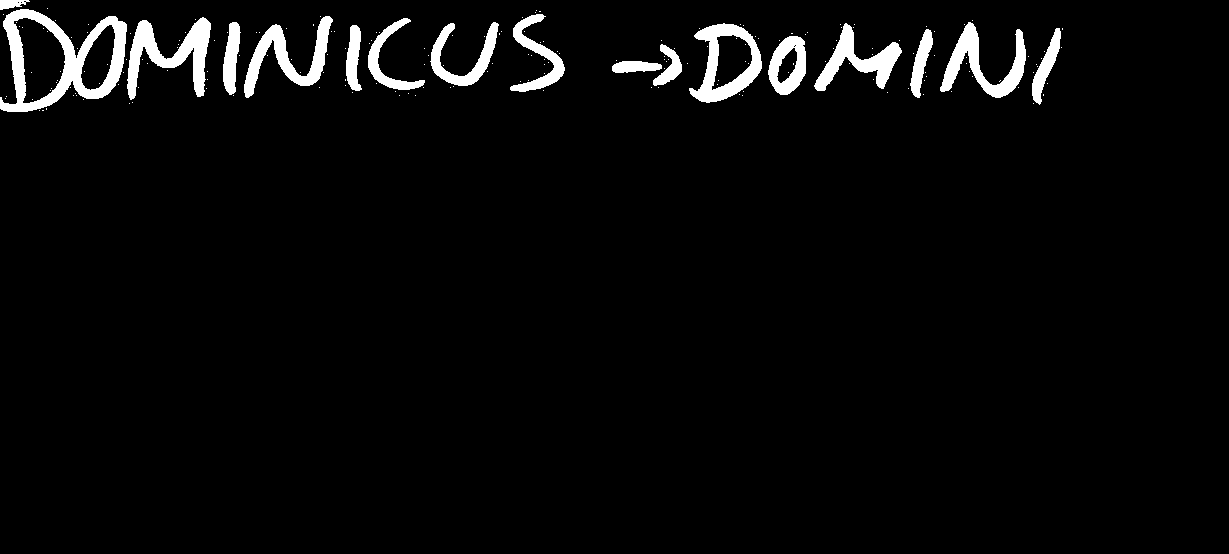 DOMINICUS → DOMINI